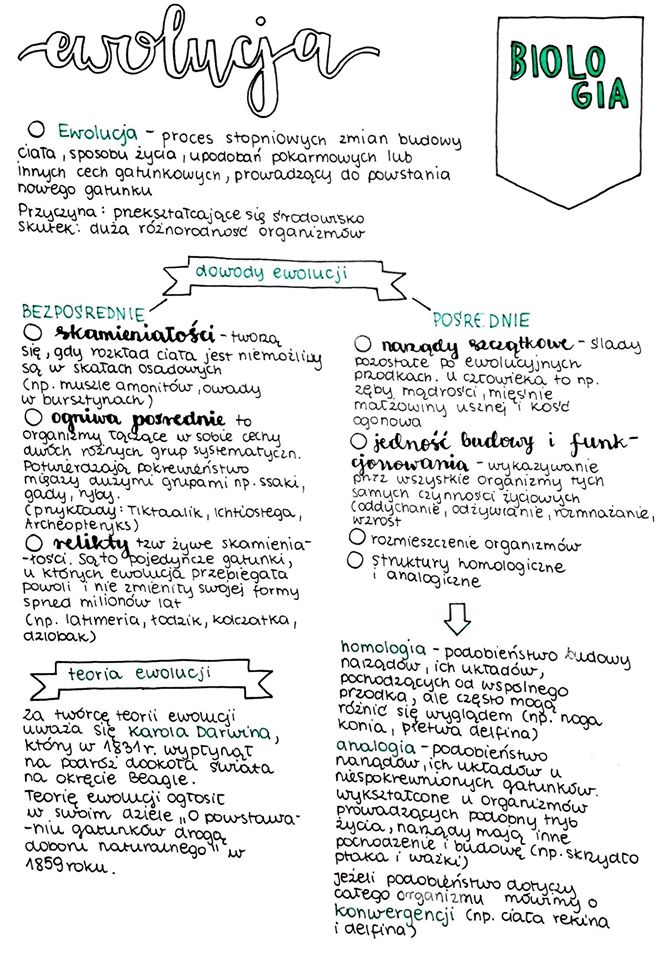 ewolucja
BIOLO
GIA
Ewolucja - proces stopniowych zmian budowy
ciała, sposobu życia, upodobań pokarmowych lub
innych cech gatunkowych, prowadzący do powstania
nowego gatunku
Przyczyna: przekształcające się środowisko
Skutek: duża różnorodność organizmów
dowody ewolucji
BEZPOŚREDNIE
skamieniałości - tworzą
się, gdy rozkład ciała jest niemożliwy
są w skałach osadowych
(np. muszle amonitów, owady
w bursztynach)
ogniwa pośrednie to
organizmy łączące w sobie cechy
dwóch różnych grup systematyczn.
Potwierdzają pokrewieństwo
między dużymi grupami np. ssaki,
gady, ryby.
(przykłady: Tiktaalik, Ichtiostega,
Archeopteryks)
relikty tzw żywe skamienia-
-łości. Są to pojedyncze gatunki,
u których ewolucja przebiegała
powoli i nie zmieniły swojej formy
sprzed milionów lat
(np. latimeria, łodzik, kolczatka,
dziobak)
teoria ewolucji
Za twórcę teorii ewolucji
uważa się Karola Darwina,
który w 1831r. wypłynął
na podróż dookoła świata
na okręcie Beagle.
Teorię ewolucji ogłosił
w swoim dziele "O powstawa-
-niu gatunków drogą
doboru naturalnego" w
1859roku.
POŚREDNIE
narządy szczątkowe - ślady
pozostałe po ewolucyjnych
przodkach. U człowieka to np.
zęby mądrości, mięśnie
małżowiny usznej i kość
ogonowa
jedność budowy i funk-
cjonowania - wykazywanie
przez wszystkie organizmy tych
samych czynności życiowych
(oddychanie, odżywianie, rozmnażanie,
wzrost
rozmieszczenie organizmów
struktury homologiczne
i analogiczne
homologia - podobieństwo budowy
narządów, ich układów,
pochodzących od wspólnego
przodka, ale często mogą
różnić się wyglądem (np. noga
konia, płetwa delfina)
analogia - podobieństwo
narządów, ich układów u
niespokrewnionych gatunków.
wykształcone u organizmów
prowadzących podobny tryb
życia, narządy mają inne
pochodzenie i budowę (np. skrzydło
ptaka i ważki)
jeżeli podobieństwo dotyczy
całego organizmu mówimy o
konwergencji (np. ciała rekina
i delfina)